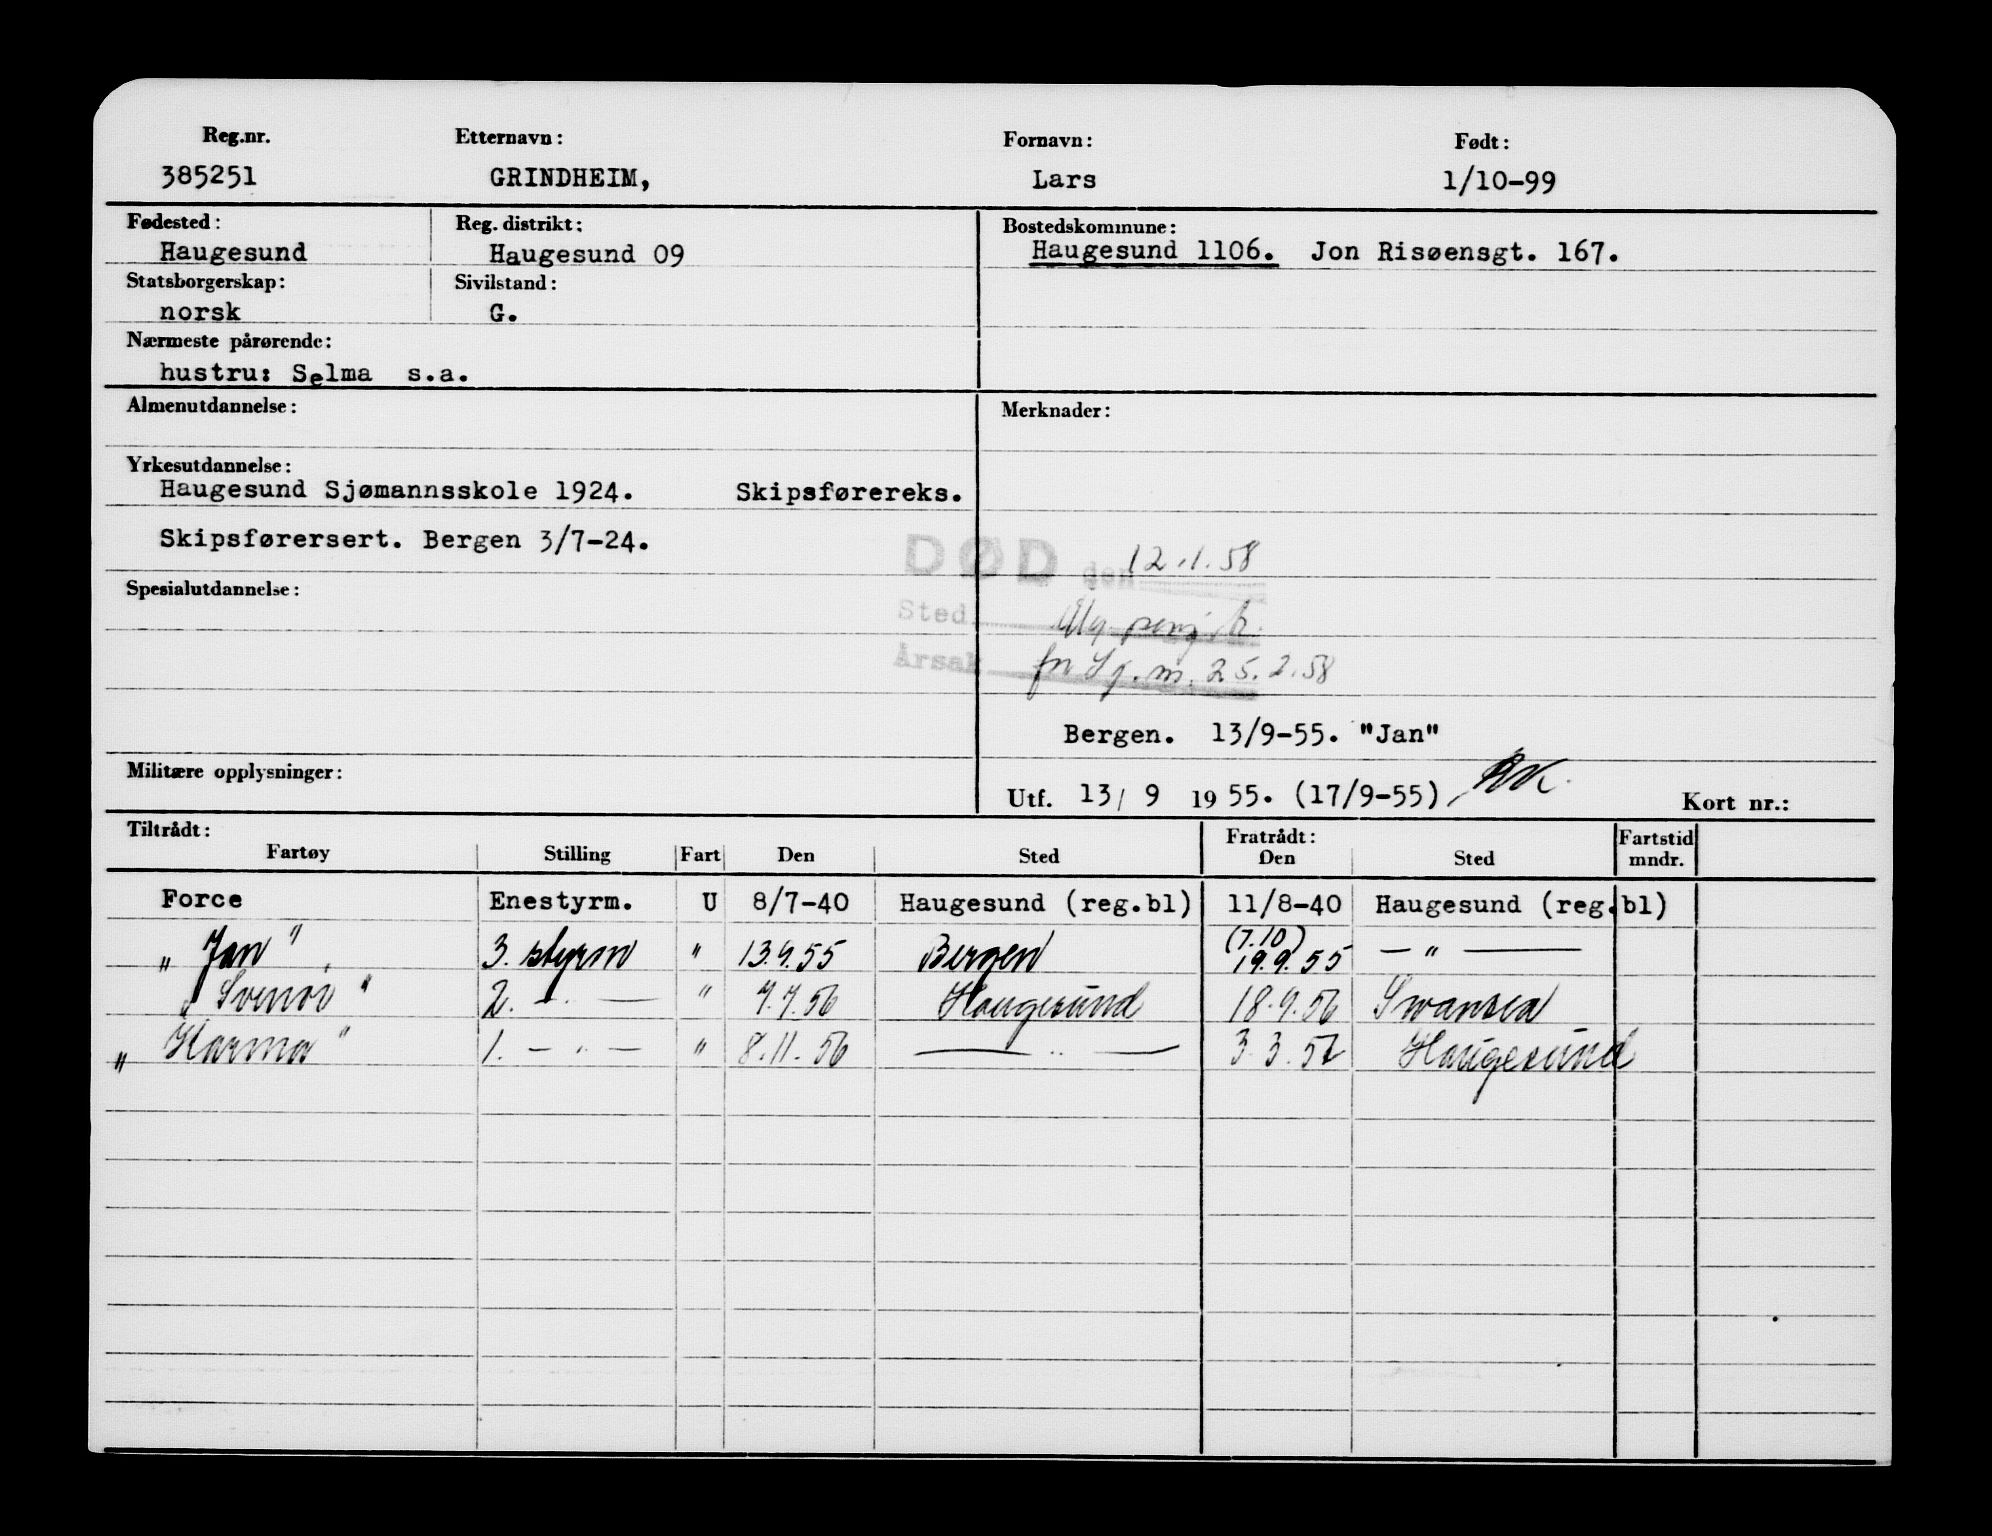 Reg.nr. Etternavn: Fornavn: Født:
385251 GRINDHEIM, Lars 1/10-99
Fødested: Reg. distrikt: Bostedskommune:
Haugesund Haugesund 09 Haugesund 1106. Jon Risøensgt. 167.
Statsborgerskap: Sivilstand:
norsk G.
Nærmeste pårørende:
hustru: Selma s.a.
Almenutdannelse: Merknader:
Yrkesutdannelse:
Haugesund Sjømannsskole 1924. Skipsførereks.
Skipsførersert. Bergen 3/7-24.
DØD den 12.1.58
Spesialutdannelse:
Sted
Årsak 25.2.58
Bergen. 13/9-55. "Jan"
Militære opplysninger:
Utf. 13/ 9 1955. (17/9-55) Kort nr.:
Tiltrådt: Fratrådt: Fartstid
Fartøy Stilling Fart Den Sted Den Sted mndr.
Force Enestyrm. U 8/7-40 Haugesund (reg.bl) 11/8-40 Haugesund (reg.bl)
„ Jan " 3. styrm " 13.9.55 Bergen (7.10) 19.9.55 — " —
" 2. — " — " 7.7.56 Haugesund 18.9.56 Swansea
„ Karma " 1. — " — " 8.11.56 — " — 3.3.57 Haugesund